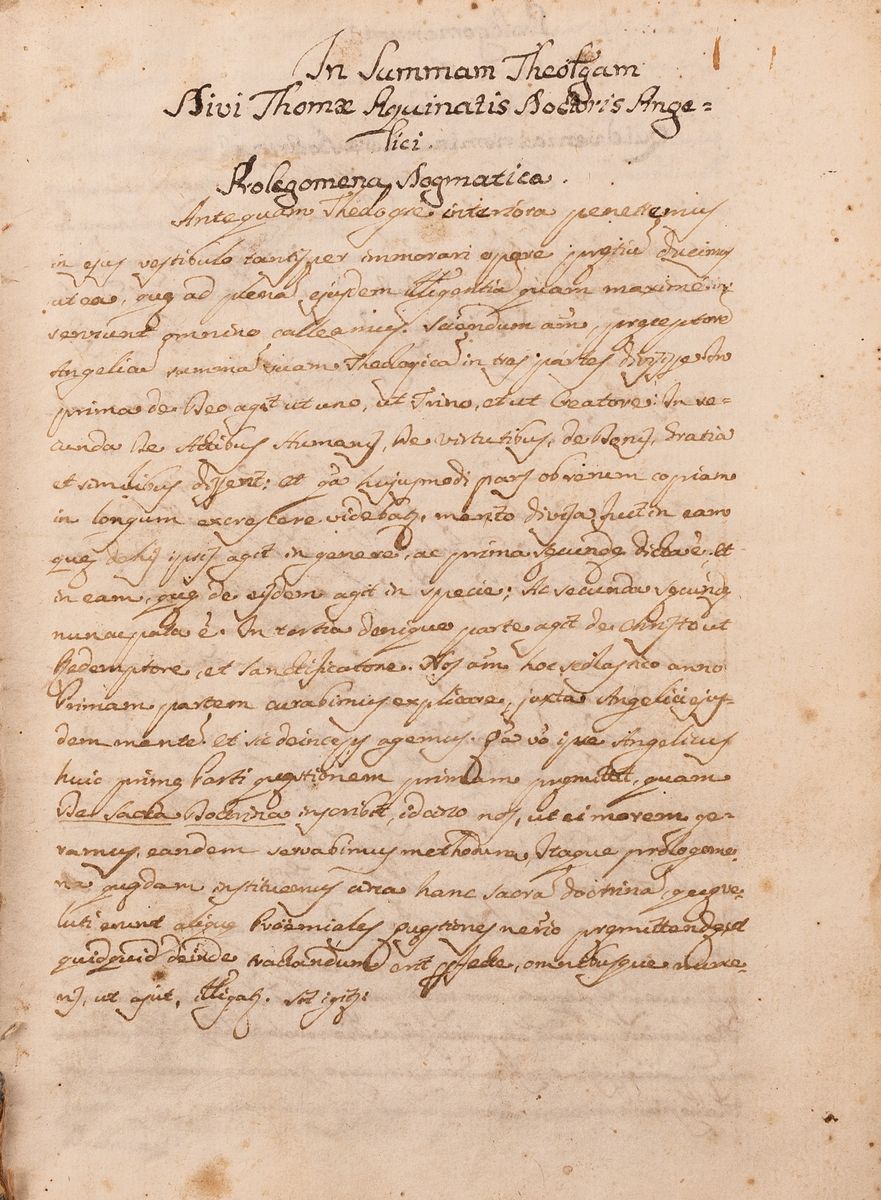 In Summam Theolgam
Divi Thomæ Aquinatis Doctoris Ange=
lici.
Prolegomena Dogmatica.
Antequam Theologiæ interiora penetremus
in ejus vestibulo tantisper immorari operæ pretiũ ducimus
ut ea, quę ad plenã ejusdem maximè
serviunt omnino calleamus. Sciendum aũt, præceptorẽ
Angelicũ summã suam Theologicã in tres partes In
prima de Deo agit ut uno, ut Trino, et ut Creatore: In se-
cunda De Actibus Humanis, De virtutibus, de Donis, Gratia
et similibus et q̃a hujusmodi pars ob rerum copiam
in longum excrescere merito divisa fuit in eam
quę de his ipsis agit in genere, ac prima secundę dicta ẽ, et
in eam, quę de eisdem agit in specie; Ac secunda secundę
ẽ. In tertia denique parte agit de Christo ut
Redemptore, et Sanctificatore. Nos aũt hoc scolastico anno
Primam partem curabimus explicare, juxta Angelici ejus-
dem mentẽ et sic deinceps agemus. Q̃a vo ipse Angelicus
huic primę Parti quęstionem primam pręmittit, quam
De Sacra Doctrina inscribit, nos, ut ei morem ge-
ramus, eandem servabimus methodum, Itaque prologome-
na quędam instituemus circa hanc sacrã doctrinã, quę ve-
luti erunt aliquę Proemiales quęstiones pręmittendę ut
quidquid deinde tractandum erit omnibusque nume-
ris, ut ajut,